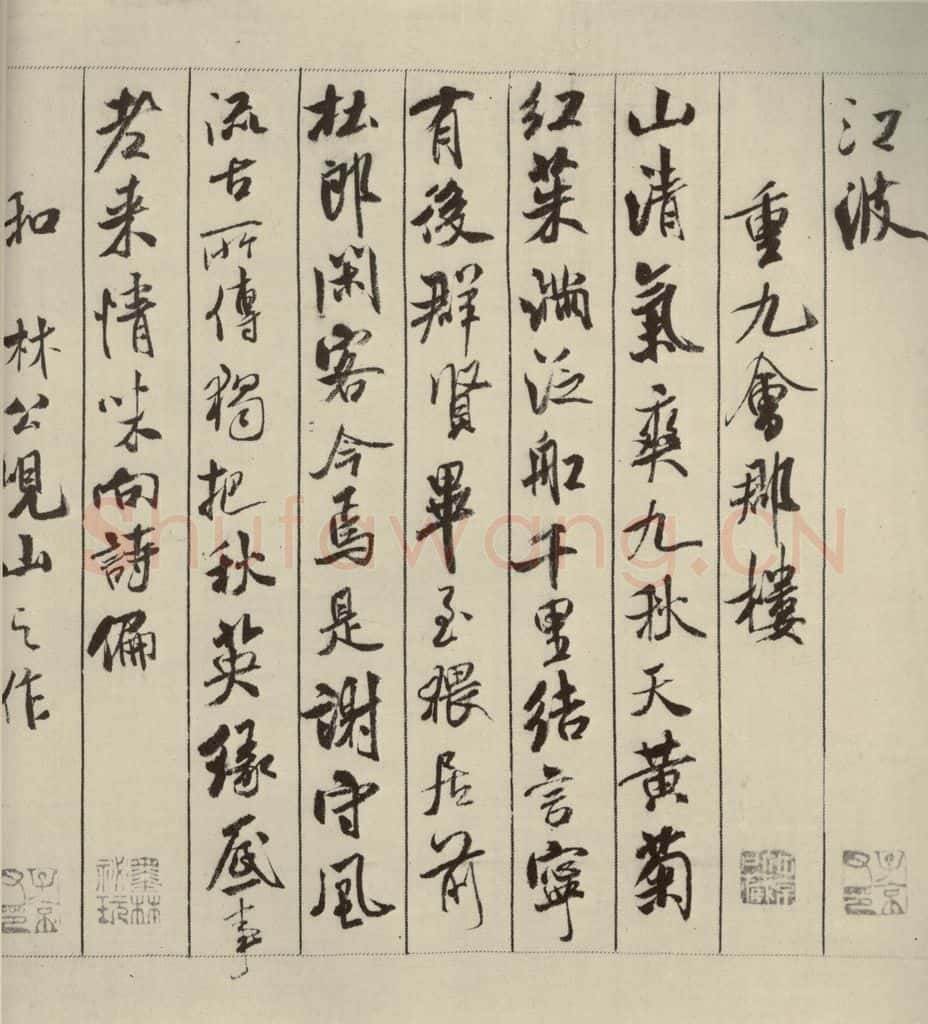 江波
重九會郡樓
山清氣爽九秋天黃菊
紅茱滿泛船千里結言寧
有後群賢畢至猥居前
杜郎閑客今焉是謝守風
流古所傳獨把秋英緣底事
老来情味向詩偏
和林公峴山之作
Shufawang.CN